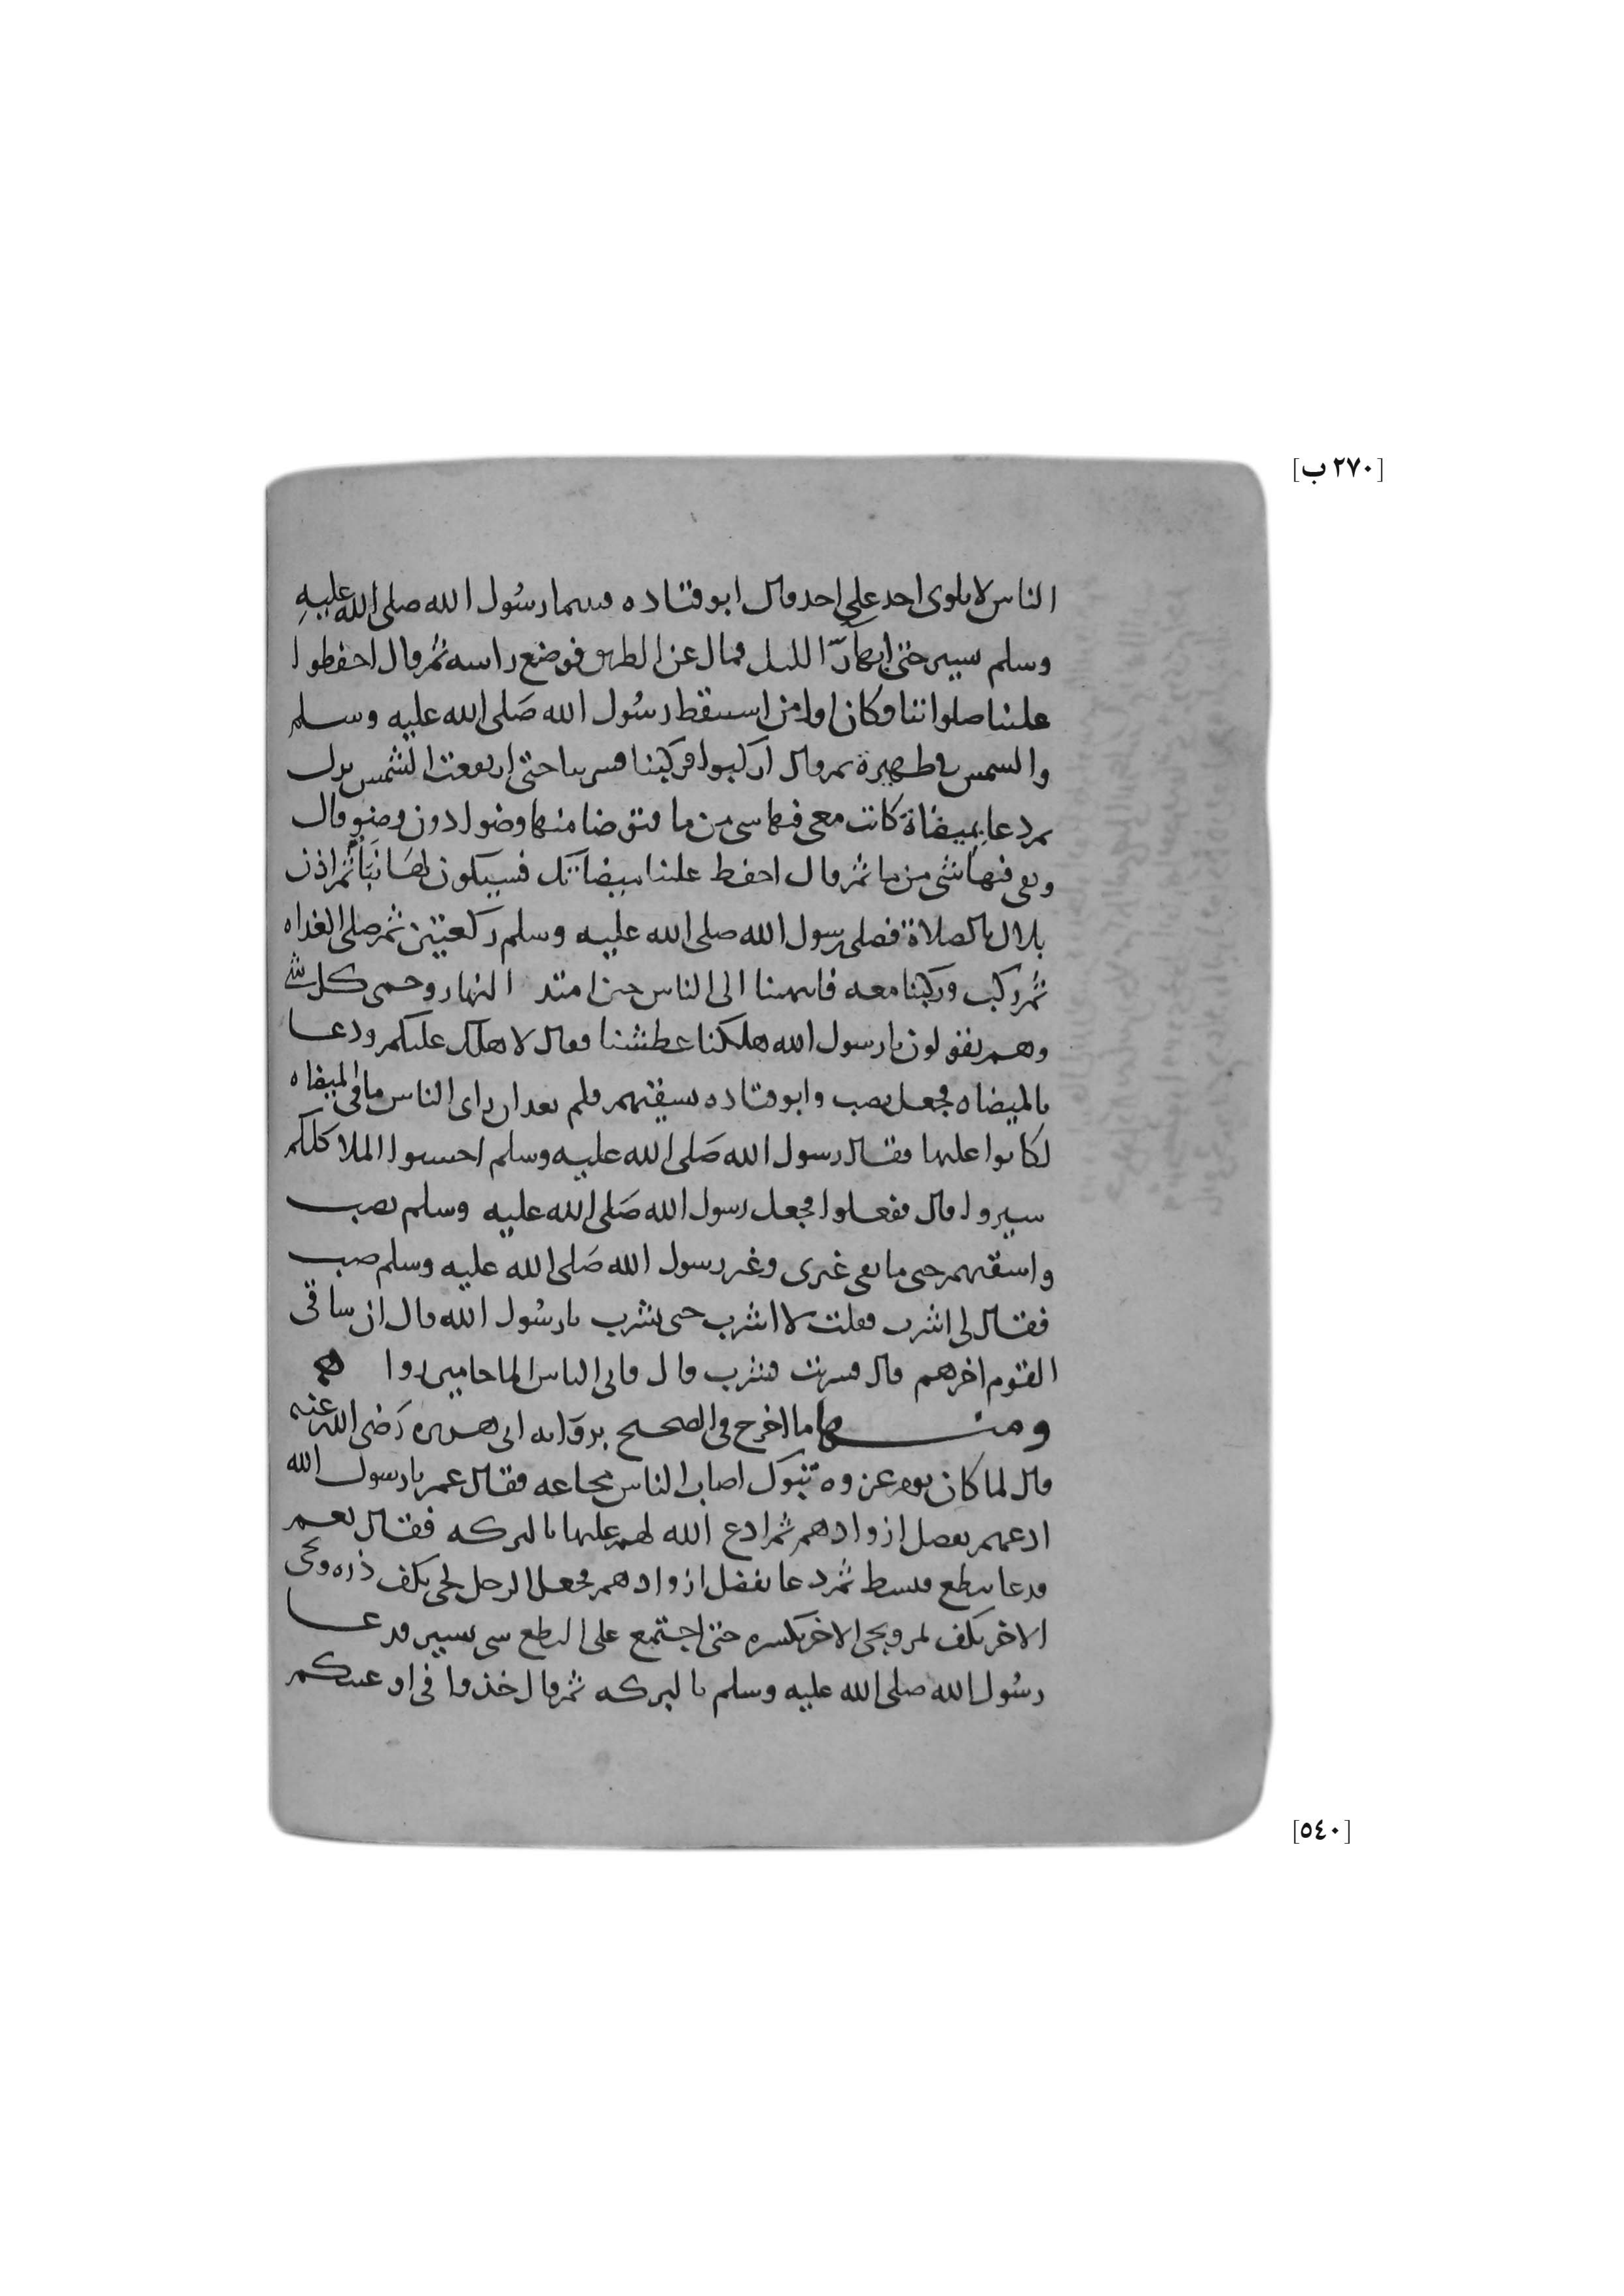 [٢٧٠ ب]
الناس لا يلوى احد على احد قال ابو قتاده فبينما رسُول الله صلى الله عليهِ
وسلم يسير حتى ابهارّ الليل فمال عن الطريق فوضع راسه ثم قال احفظوا
علينا صلواتنا فكان اول من استيقظ رسُول الله صَلى الله عليه وسلم
والشمس في ظهره ثم قال اركبوا فركبنا فسرنا حتى ارتفعت الشمس نزل
ثم دعا بميضاة كانت معى فيها شى من ما فتوضا منها وضوا دون وضو قال
وبقى فيها شى من ما ثم قال احفظ علينا ميضاتك فسيكون لهَا نَبَأ ثم اذن
بلال بالصلاة فصلى رسول الله صلى الله عليه وسلم ركعتين ثم صلى الغداه
ثم ركب وركبنا معه فانتهينا الى الناس حين امتد النهار وحمى كل شى
وهم يقولون يا رسول الله هلكنا عطشنا فقال لا هلك عليكم ودعا
بالميضاه فجعل يصب وابو قتاده يسقيهم فلم يعد ان راى الناس ما فى الميضاه
تكابوا عليها فقال رسول الله صَلى الله عليه وسلم احسنوا الملا كلكم
سيروا قال ففعلوا فجعل رسول الله صَلى الله عليه وسلم يصب
واسقيهم حتى ما بقى غيرى وغير رسول الله صَلى الله عليه وسلم صب
فقال لى اشرب فقلت لا اشرب حتى تشرب يا رسُول الله قال ان ساقى
القوم اخرهم قال فشربت فشرب قال فاتى الناس الما جامين روا
ومنها ما اخرج فى الصحيح برواية ابى هريره رَضى الله عنه
قال لما كان يوم غزوه تبوك اصاب الناس مجاعه فقال عمر يا رسول الله
ادعهم بفضل ازوادهم ثم ادع الله لهم عليها بالبركه فقال نعم
فدعا بنطع فبسط ثم دعا بفضل ازوادهم فجعل الرجل يجى بكف ذره ويجى
الاخر بكف تمر ويجى الاخر بكسره حتى اجتمع على النطع شى يسير فدعا
رسُول الله صلى الله عليه وسلم بالبركه ثم قال خذوا فى اوعيتكم
[٥٤٠]